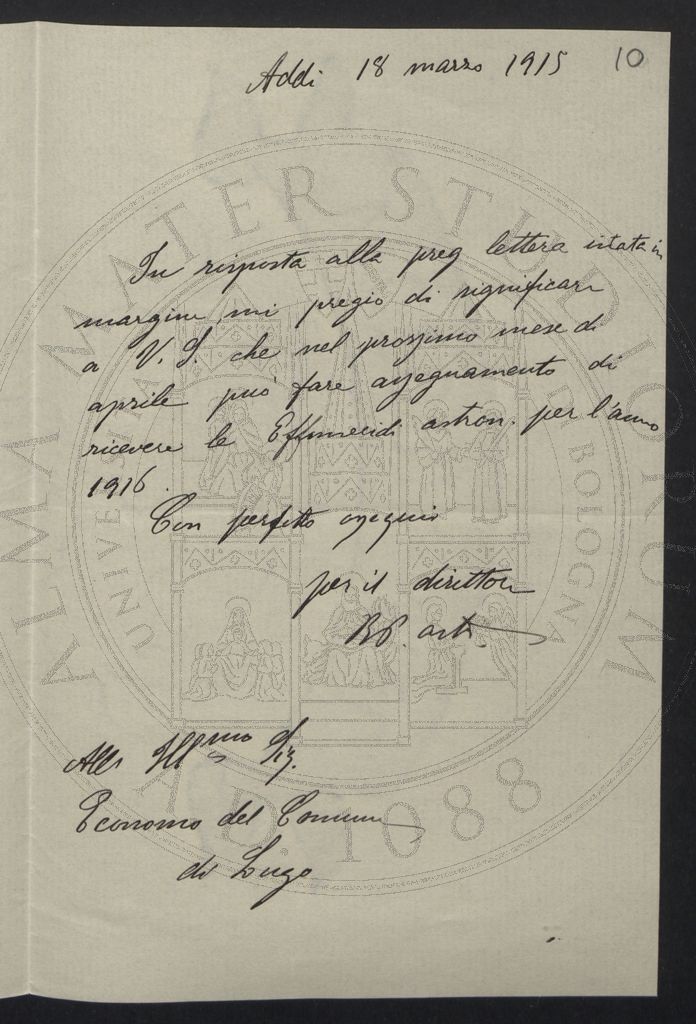 10
Addì 18 marzo 1915
In risposta alla preg lettera citata in
margine, mi pregio di significare
a V. S. che nel prossimo mese di
aprile può fare assegnamento di
ricevere le Effemeridi astron. per l'anno
1916.
Con perfetto ossequio
per il direttore
All Ill mo Sig.
Economo del Comune
di Lugo
ALMA MATER STUDIORUM
UNIVERSITÀ DI BOLOGNA
A.D. 1088